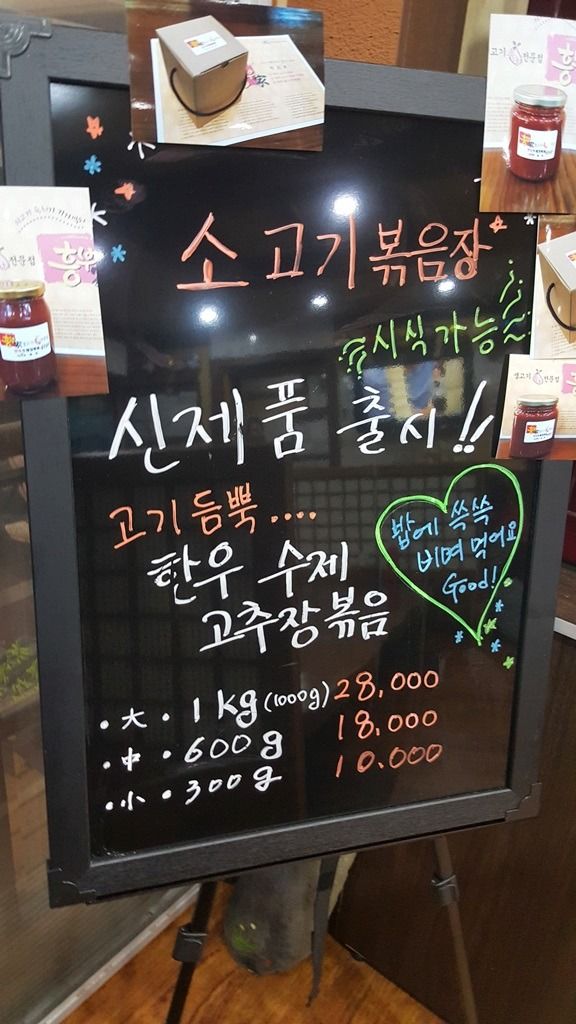 소고기볶음장
시식가능~
신제품 출시!!
고기듬뿍....
한우 수제
고추장볶음
밥에 쓱쓱
비벼먹어요
Good!
· 大 · 1kg(1000g) 28,000
· 中 · 600g 18,000
· 小 · 300g 10.000
전문점
고기 전문점
생고기 전문점